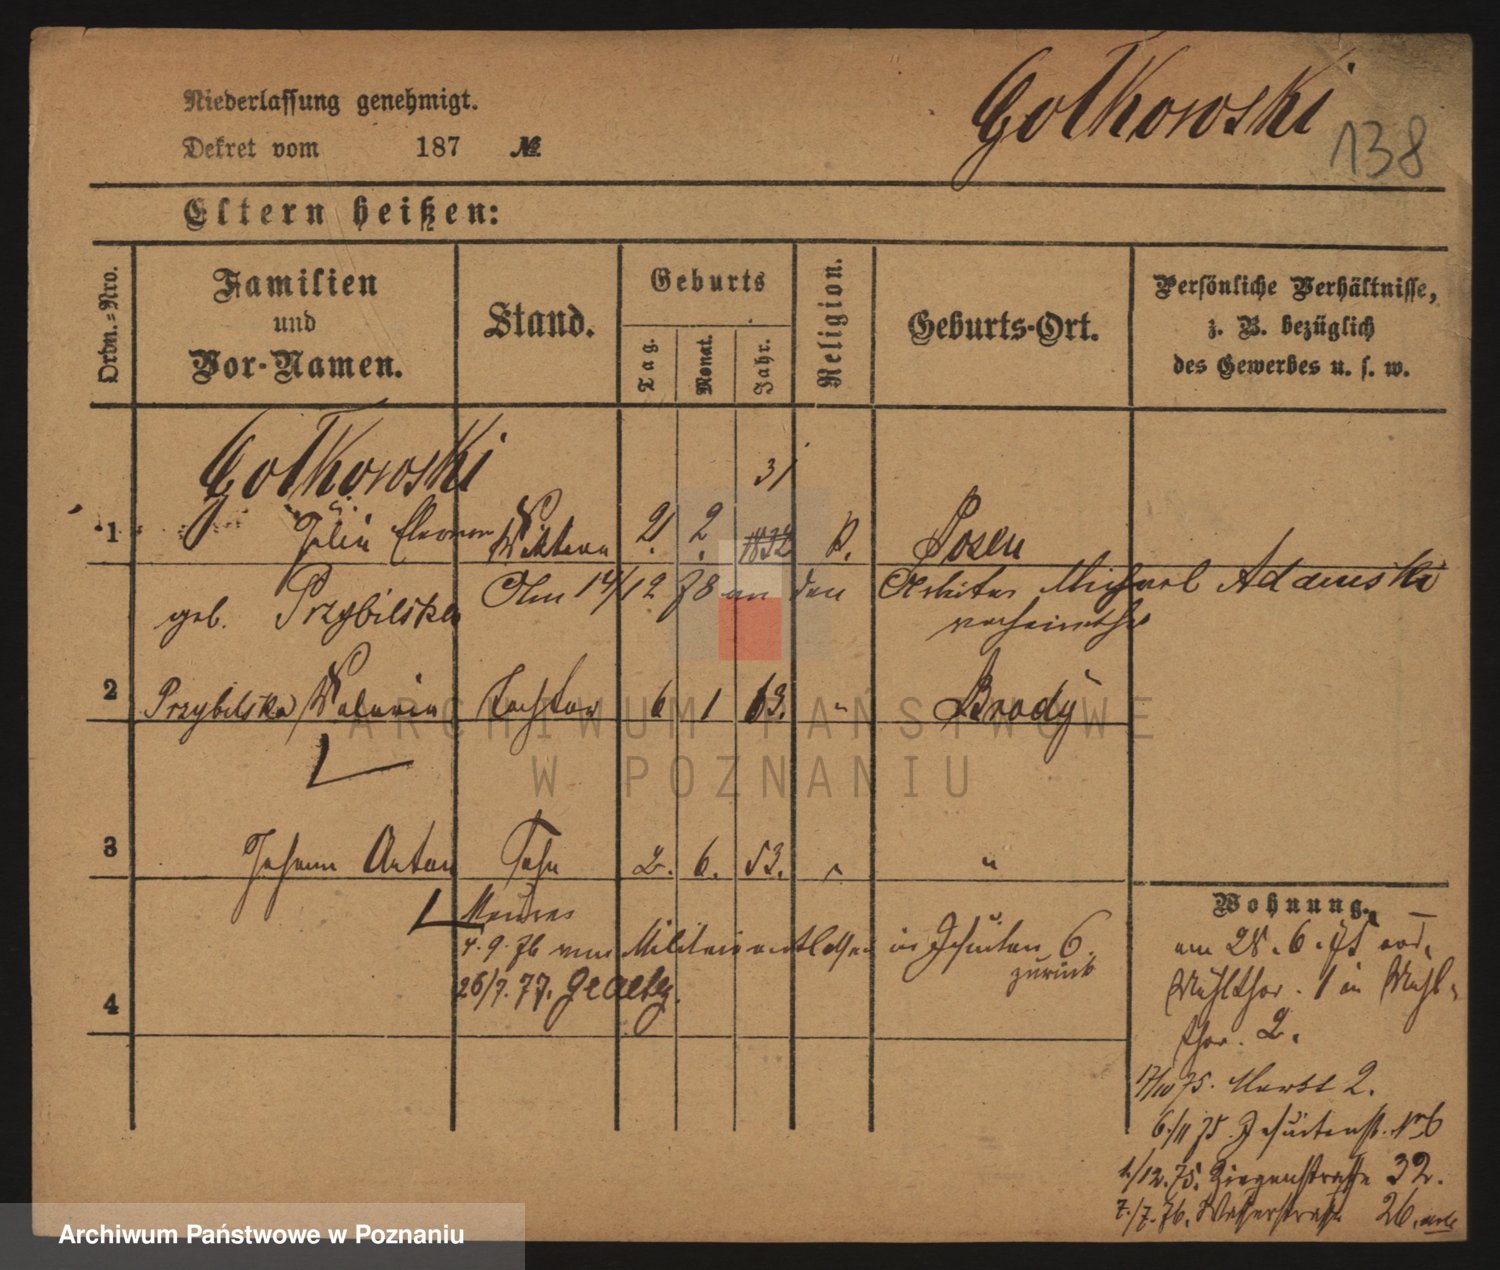 Gotkowski
138
Niederlassung genehmigt.
Dekret vom 187 №
Eltern heißen:
Ordn.-Nro.
Familien
und
Vor-Namen.
Stand.
Geburts
Tag.
Monat.
Jahr.
Religion.
Geburts-Ort.
Persönliche Verhältnisse,
z. B. bezüglich
des Gewerbes u. s. w.
Gotkowski
31
1 2. 2. 1832 Posen
geb. Przybilska
14/12 78 an den Arbeiter Michael Adamski
verheirathet
2 Przybilska Valeria Tochter 6 1 63. " Brody
3 Johann Anton Sohn 2. 6. 53. " "
Maurer
4. 9. 76 vom Militair entlassen in Jesuiten 6.
zurück
26/7. 77.
4
Wohnung.
am 28. 6. 75 von
Mühlthor. 1 in Mühl-
thor. 2.
17/10 75. Markt 2.
6/11 75. Jesuitenst. Nr 6
1/12. 75. Ziegenstrasse 32.
7./7. 76. Wasserstrasse 26.
ARCHIWUM PAŃSTWOWE
W POZNANIU
Archiwum Państwowe w Poznaniu